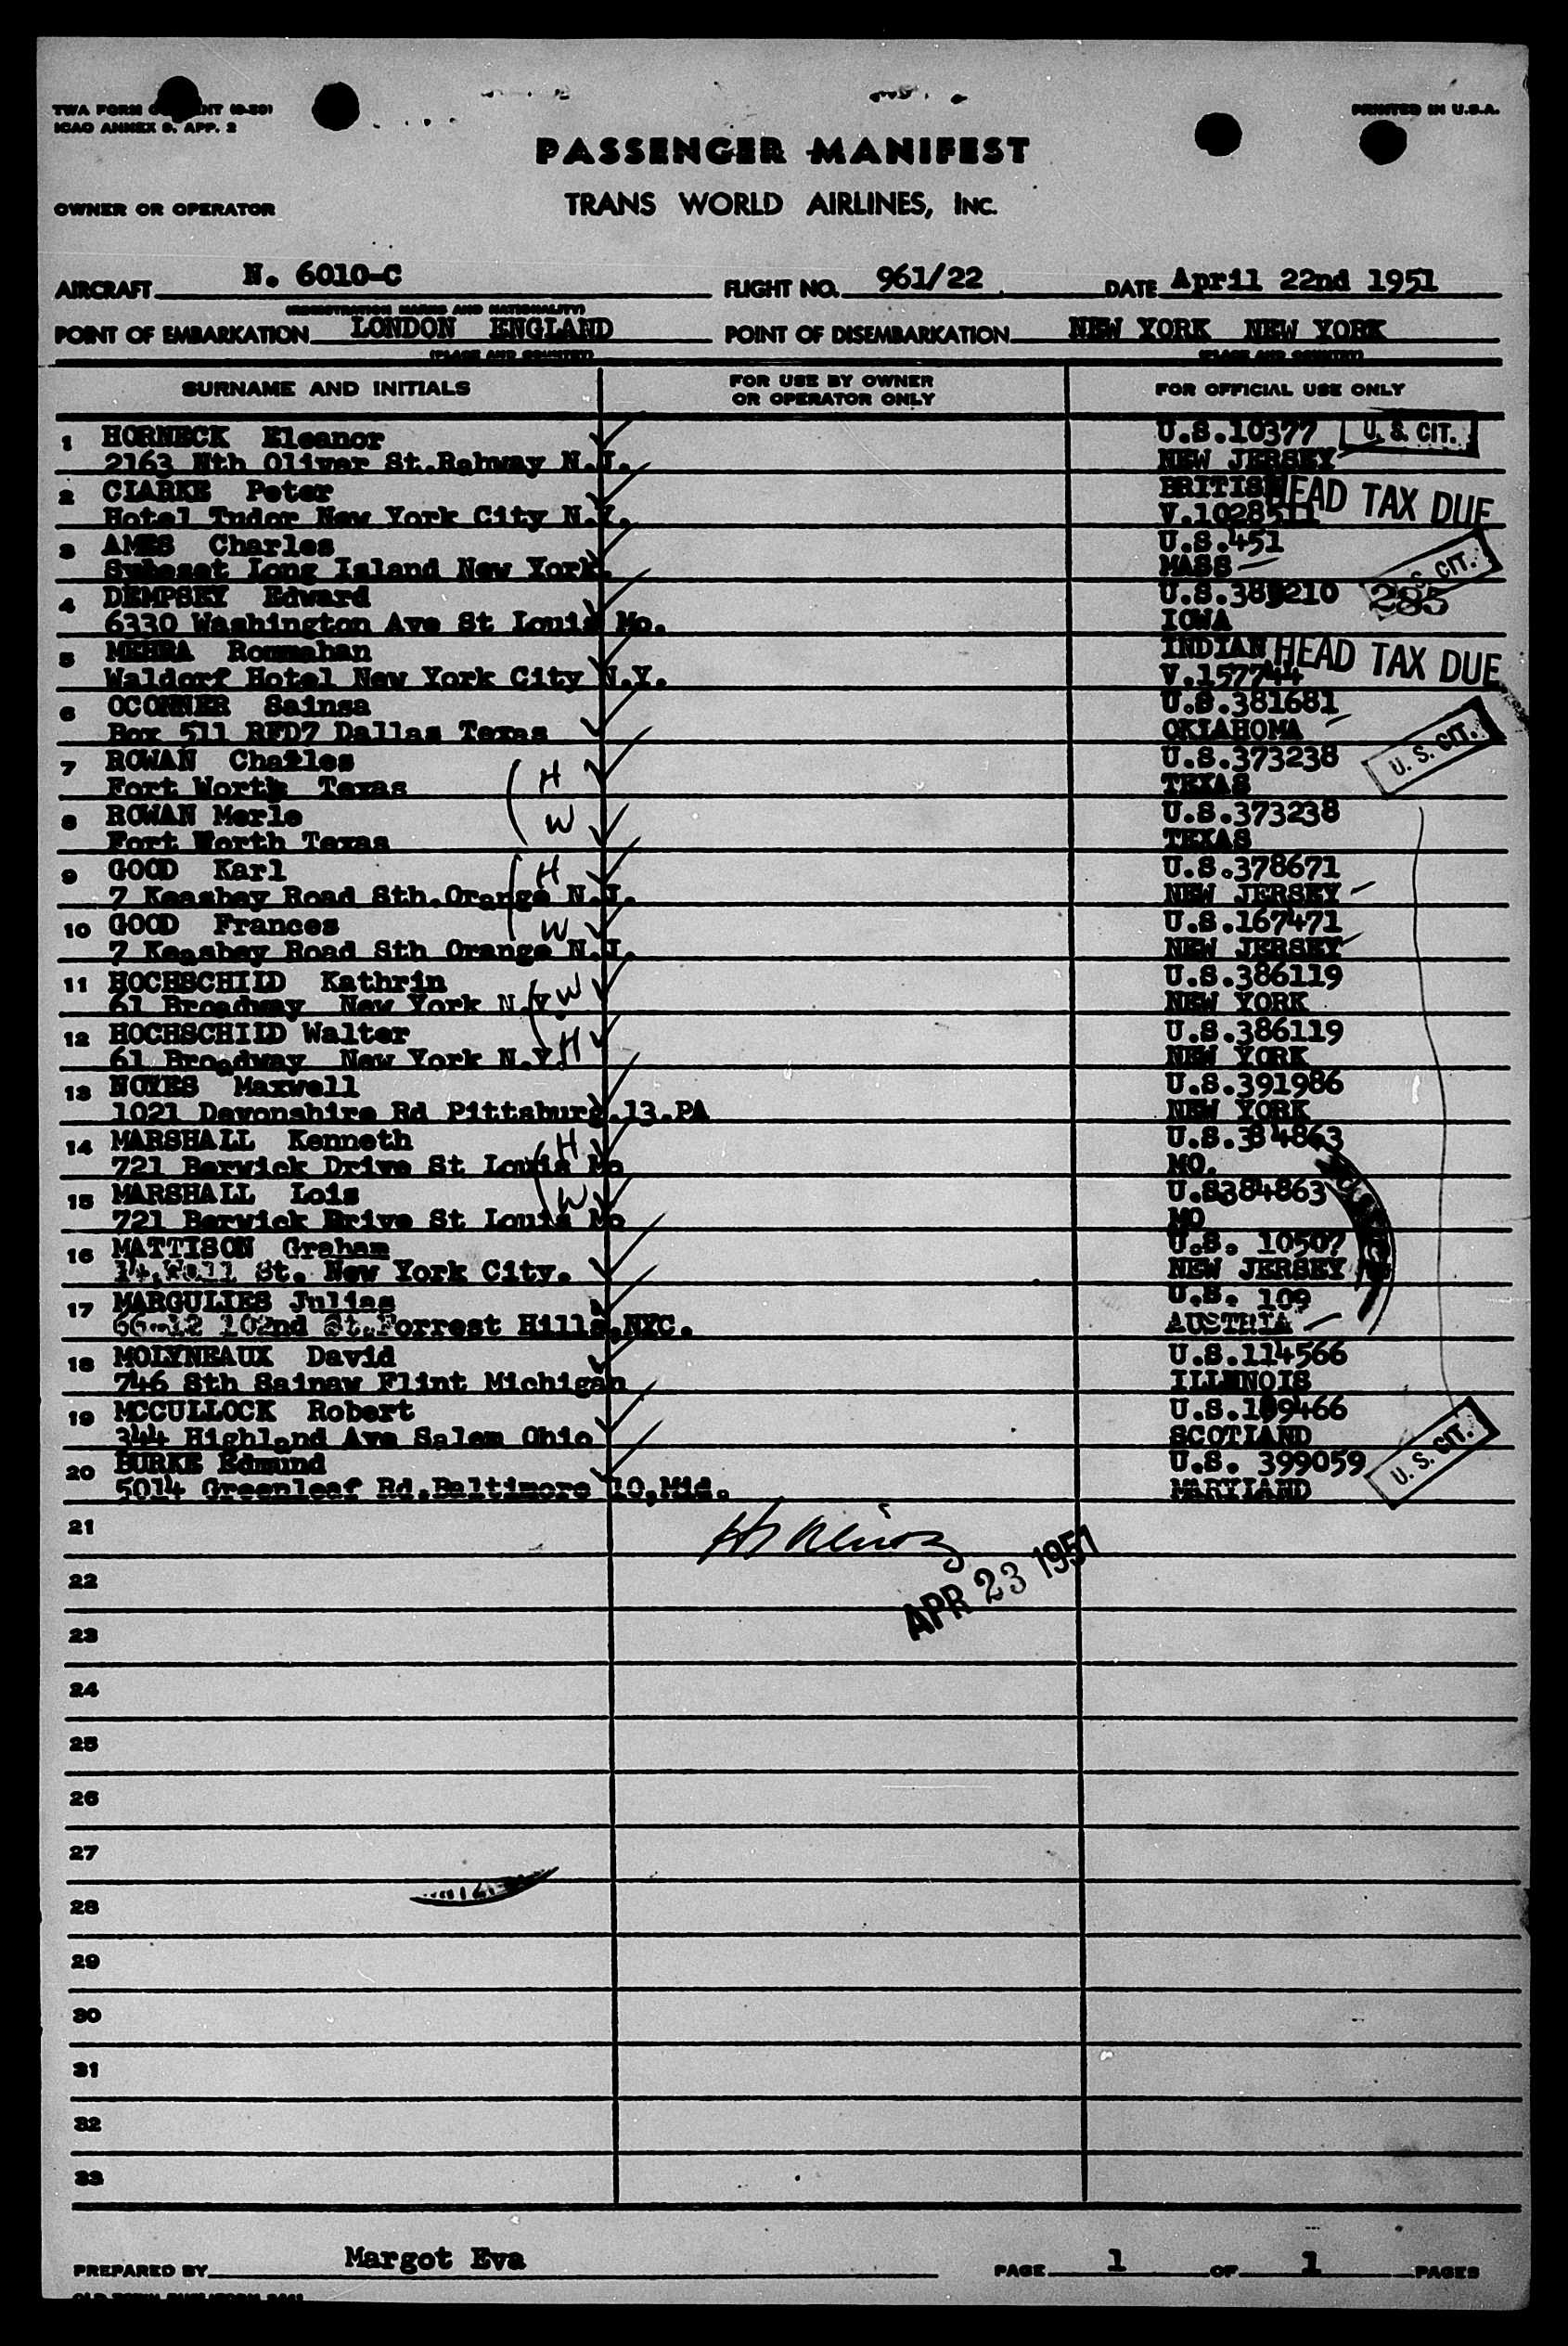 ICAO ANNEX 9. APP. 2
PRINTED IN U.S.A.
PASSENGER MANIFEST
OWNER OR OPERATOR
TRANS WORLD AIRLINES, INC.
AIRCRAFT N. 6010-C FLIGHT NO. 961/22 DATE April 22nd 1951
(REGISTRATION MARKS AND NATIONALITY)
POINT OF EMBARKATION LONDON ENGLAND POINT OF DISEMBARKATION NEW YORK NEW YORK
(PLACE AND COUNTRY) (PLACE AND COUNTRY)
SURNAME AND INITIALS FOR USE BY OWNER OR OPERATOR ONLY FOR OFFICIAL USE ONLY
1 HORNECK Eleanor U.S.10377 U.S. CIT.
2163 Nth Oliver St.Rahway N.J. NEW JERSEY
2 CLARKE Peter BRITISH HEAD TAX DUE
Hotel Tudor New York City N.Y. V.1028511
3 AMES Charles U.S.451
Long Island New York. MASS CIT.
4 DEMPSEY Edward 285
6330 Washington Ave St Louis Mo. IOWA
5 MEHRA Rommahan INDIAN HEAD TAX DUE
Waldorf Hotel New York City N.Y. V.157744
6 OCONNER Sainsa U.S.381681
Box 511 RFD7 Dallas Texas OKLAHOMA
7 ROWAN Charles H U.S.373238 U.S. CIT.
Fort Worth Texas TEXAS
8 ROWAN Merle W U.S.373238
Fort Worth Texas TEXAS
9 GOOD Karl H U.S.378671
7 Keasbey Road Sth.Orange N.J. NEW JERSEY
10 GOOD Frances W U.S.167471
7 Keasbey Road Sth Orange N.J. NEW JERSEY
11 HOCHSCHILD Kathrin W U.S.386119
61 Broadway New York N.Y. NEW YORK
12 HOCHSCHILD Walter H U.S.386119
61 Broadway New York N.Y. NEW YORK
13 NOYES Maxwell U.S.391986
1021 Devonshire Rd Pittsburg.13.PA NEW YORK
14 MARSHALL Kenneth H U.S.384863
721 Berwick Drive St Louis Mo MO.
15 MARSHALL Lois W U.S384863
721 Berwick Drive St Louis Mo MO
16 MATTISON Graham U.S. 10507
14,Wall St. New York City. NEW JERSEY
17 MARGULIES Julias U.S. 109
66-12 102nd St.Forrest Hills,NYC. AUSTRIA
18 MOLYNEAUX David U.S.114566
746 Sth Sainaw Flint Michigan ILLINOIS
19 MCCULLOCK Robert
344 Highland Ave Salem Ohio SCOTLAND
20 BURKE Edmund U.S. 399059 U.S. CIT.
5014 Greenleaf Rd.Baltimore 10,Md. MARYLAND
21
APR 23 1951
22
23
24
25
26
27
28
29
30
31
32
33
PREPARED BY Margot Eva PAGE 1 OF 1 PAGES